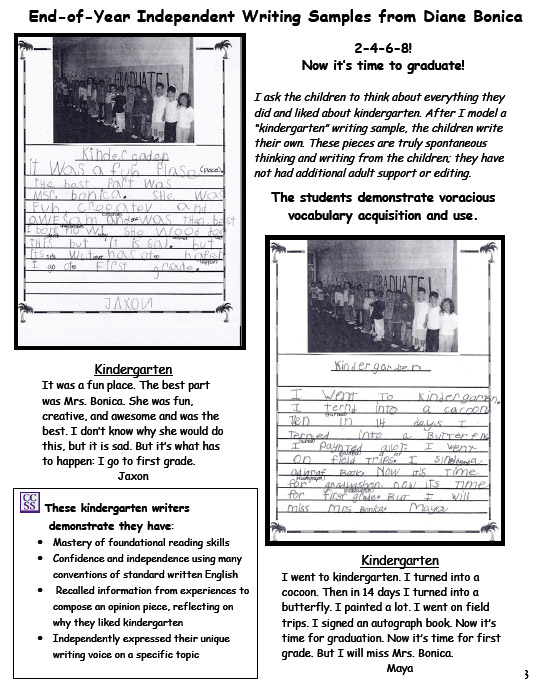 End-of-Year Independent Writing Samples from Diane Bonica
GRADUATE!
Kindergaden
it was a fun plase (place).
the best part was
Msr. bonica. She was
Fun creeatev and
awesam and was then best
I don't no wi she wood too
this but it is sad. but
its wut has to hapen
I go to First grade.
JAXON
Kindergarten
It was a fun place. The best part
was Mrs. Bonica. She was fun,
creative, and awesome and was the
best. I don't know why she would do
this, but it is sad. But it's what has
to happen: I go to first grade.
Jaxon
CC
SS
These kindergarten writers
demonstrate they have:
• Mastery of foundational reading skills
• Confidence and independence using many
conventions of standard written English
• Recalled information from experiences to
compose an opinion piece, reflecting on
why they liked kindergarten
• Independently expressed their unique
writing voice on a specific topic
2-4-6-8!
Now it's time to graduate!
I ask the children to think about everything they
did and liked about kindergarten. After I model a
"kindergarten" writing sample, the children write
their own. These pieces are truly spontaneous
thinking and writing from the children; they have
not had additional adult support or editing.
The students demonstrate voracious
vocabulary acquisition and use.
GRADUATE!
Kindergarden
I went to kindergarten.
I ternd into a cacoon
Ten in 14 days I
terned into a Butterfly
I paynted alot. I went
on field trips. I sined
adagraf Book. Now it's time
for graduashon now its time
for first grade. But I will
miss Mrs Bonica. Maya
Kindergarten
I went to kindergarten. I turned into a
cocoon. Then in 14 days I turned into a
butterfly. I painted a lot. I went on field
trips. I signed an autograph book. Now it's
time for graduation. Now it's time for first
grade. But I will miss Mrs. Bonica.
Maya